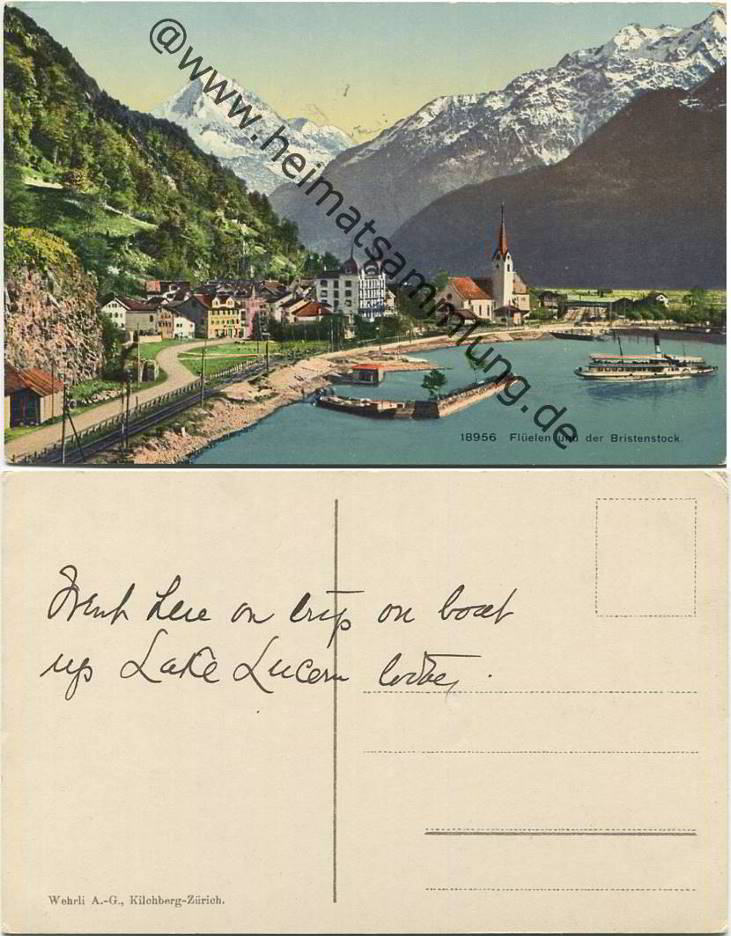 @www.heimatsammlung.de
18956 Flüelen und der Bristenstock.
Went here on trip on boat
up Lake Lucern today.
Wehrli A.-G., Kilchberg-Zürich.